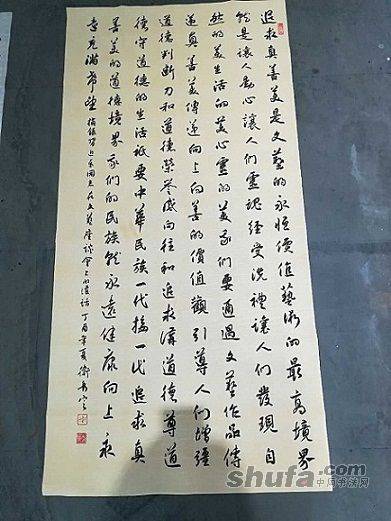 追求真善美是文藝的永恒價值藝術的最高境界
就是讓人動心讓人們靈魂經受洗禮讓人們發現自
然的美生活的美心靈的美我們要通過文藝作品傳
遞真善美傳遞向上向善的價值觀引導人們增强
道德判斷力和道德榮譽感向往和追求講道德尊道
德守道德的生活衹要中華民族一代接一代追求真
善美的道德境界我們的民族就永遠健康向上永
遠充滿希望 摘錄習近平同志在文藝座談會上的講話 丁酉年夏
shufa.com
中国书法网